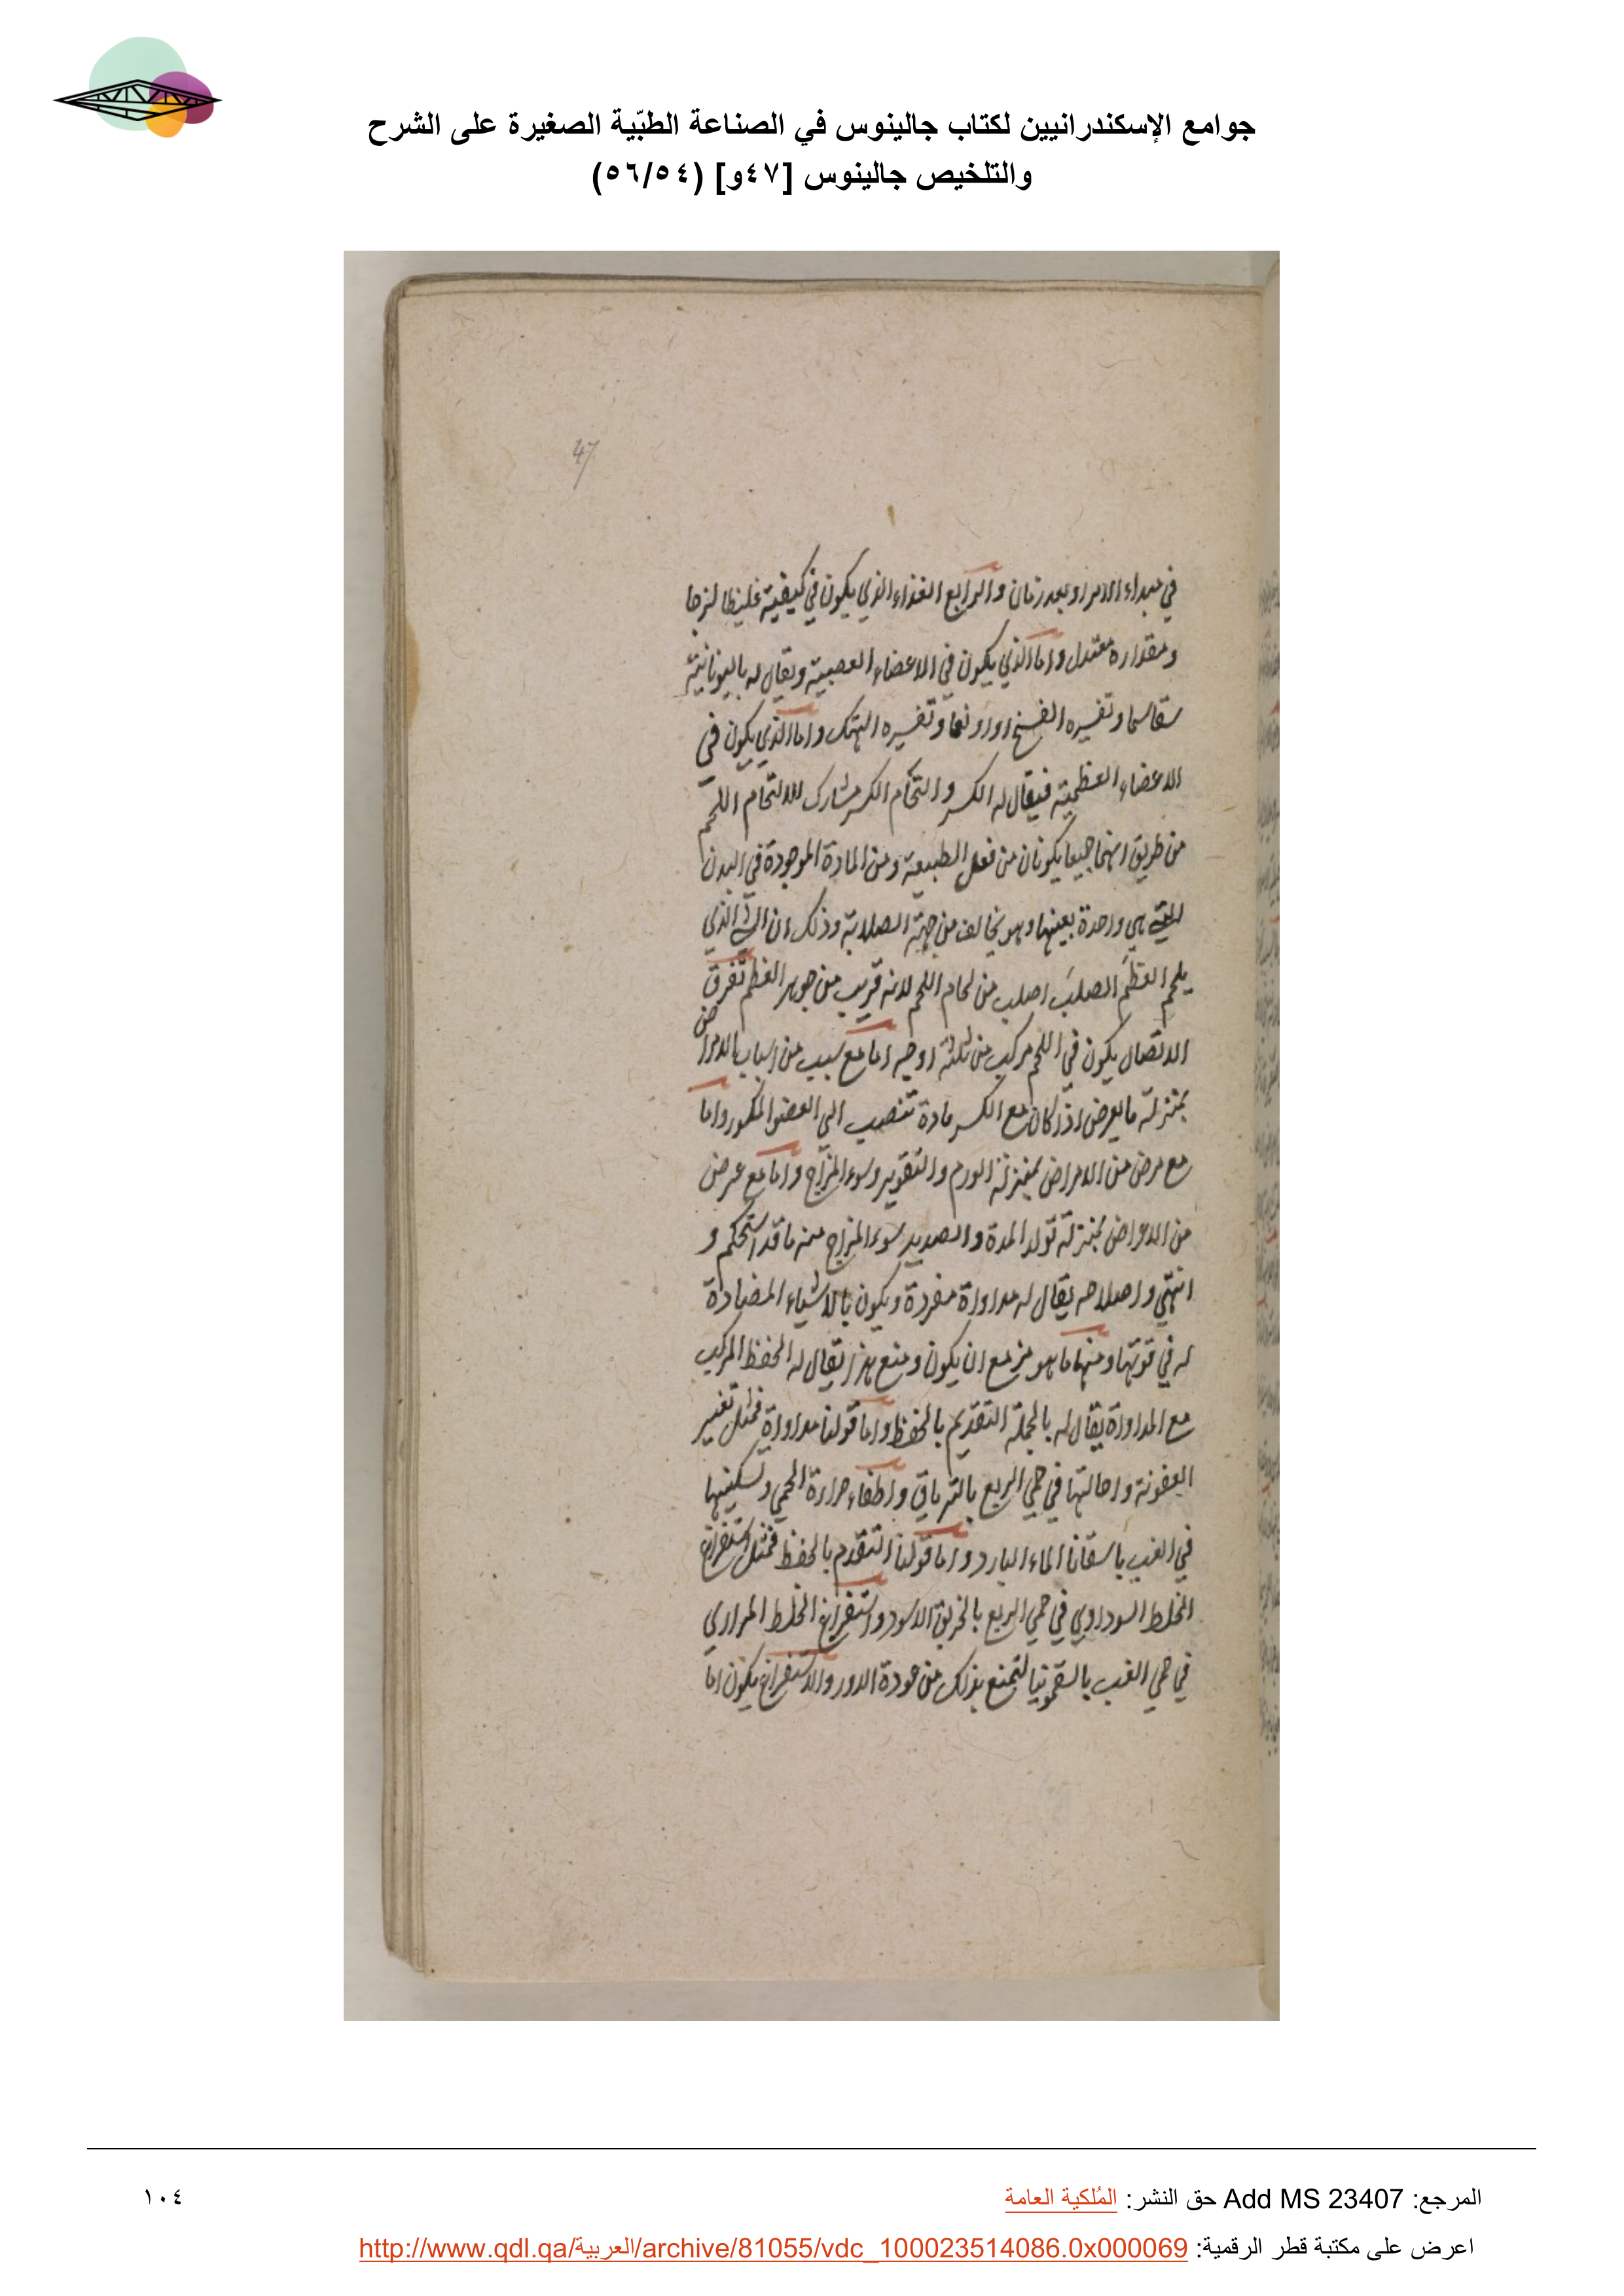 جوامع الإسكندرانيين لكتاب جالينوس في الصناعة الطبّية الصغيرة على الشرح
والتلخيص جالينوس [٤٧و] (٥٦/٥٤)
47
في مبداء الامر او بعد زمان والرابع الغذاء الذي يكون في كيفيته غليظا لزجا
ومقداره معتدل واما الذي يكون في الاعضاء العصبية ويقال له باليونانية
سقاسما وتفسيره الفسخ او وتفسيره الهتك واما الذي يكون في
الاعضاء العظمية فيقال له الكسر والتحام الكسر مشارك لالتحام اللحم
من طريق انهما جميعا يكونان من فعل الطبيعة ومن المادة الموجودة في البدن
التي هي واحدة بعينها وهو يخالف من جهة الصلابة وذلك ان الشي الذي
يلحم العظم الصلب اصلب من لحام اللحم لانه قريب من جوهر العظم تفرق
الاتصال يكون في اللحم مركب من ثلثة اوجه اما مع سبب من اسباب الامراض
بمنزلة ما يعرض اذا كان مع الكسر مادة تنصب الى العضو المكسور واما
مع مرض من الامراض بمنزلة الورم والتقوير وسوء المزاج واما مع عرض
من الاعراض بمنزلة تولد المدة والصديد سوء المزاج منه ما قد استحكم و
انتهي واصلاحه يقال له مداواة مفردة ويكون بالاشياء المضادة
له في قوتها ومنها ما هو مزمع ان يكون ومنع هذا يقال له الحفظ المركب
مع المداواة يقال له بالجملة التقديم بالحفظ واما قولنا مداواة فمثل تغيير
العفونة واحالتها في حمي الربع بالترياق واطفاء حرارة الحمي وتسكينها
في الغب باسقانا الماء البارد واما قولنا التقدم بالحفظ فمثل استفراغ
الخلط السوداوي في حمي الربع بالخربق الاسود واستفراغ الخلط المراري
في حمي الغب بالسقمونيا لتمنع بذلك من عودة الدور والاستفراغ يكون اما
المرجع: Add MS 23407 حق النشر: المُلكية العامة
١٠٤
اعرض على مكتبة قطر الرقمية: http://www.qdl.qa/العربية/archive/81055/vdc_100023514086.0x000069